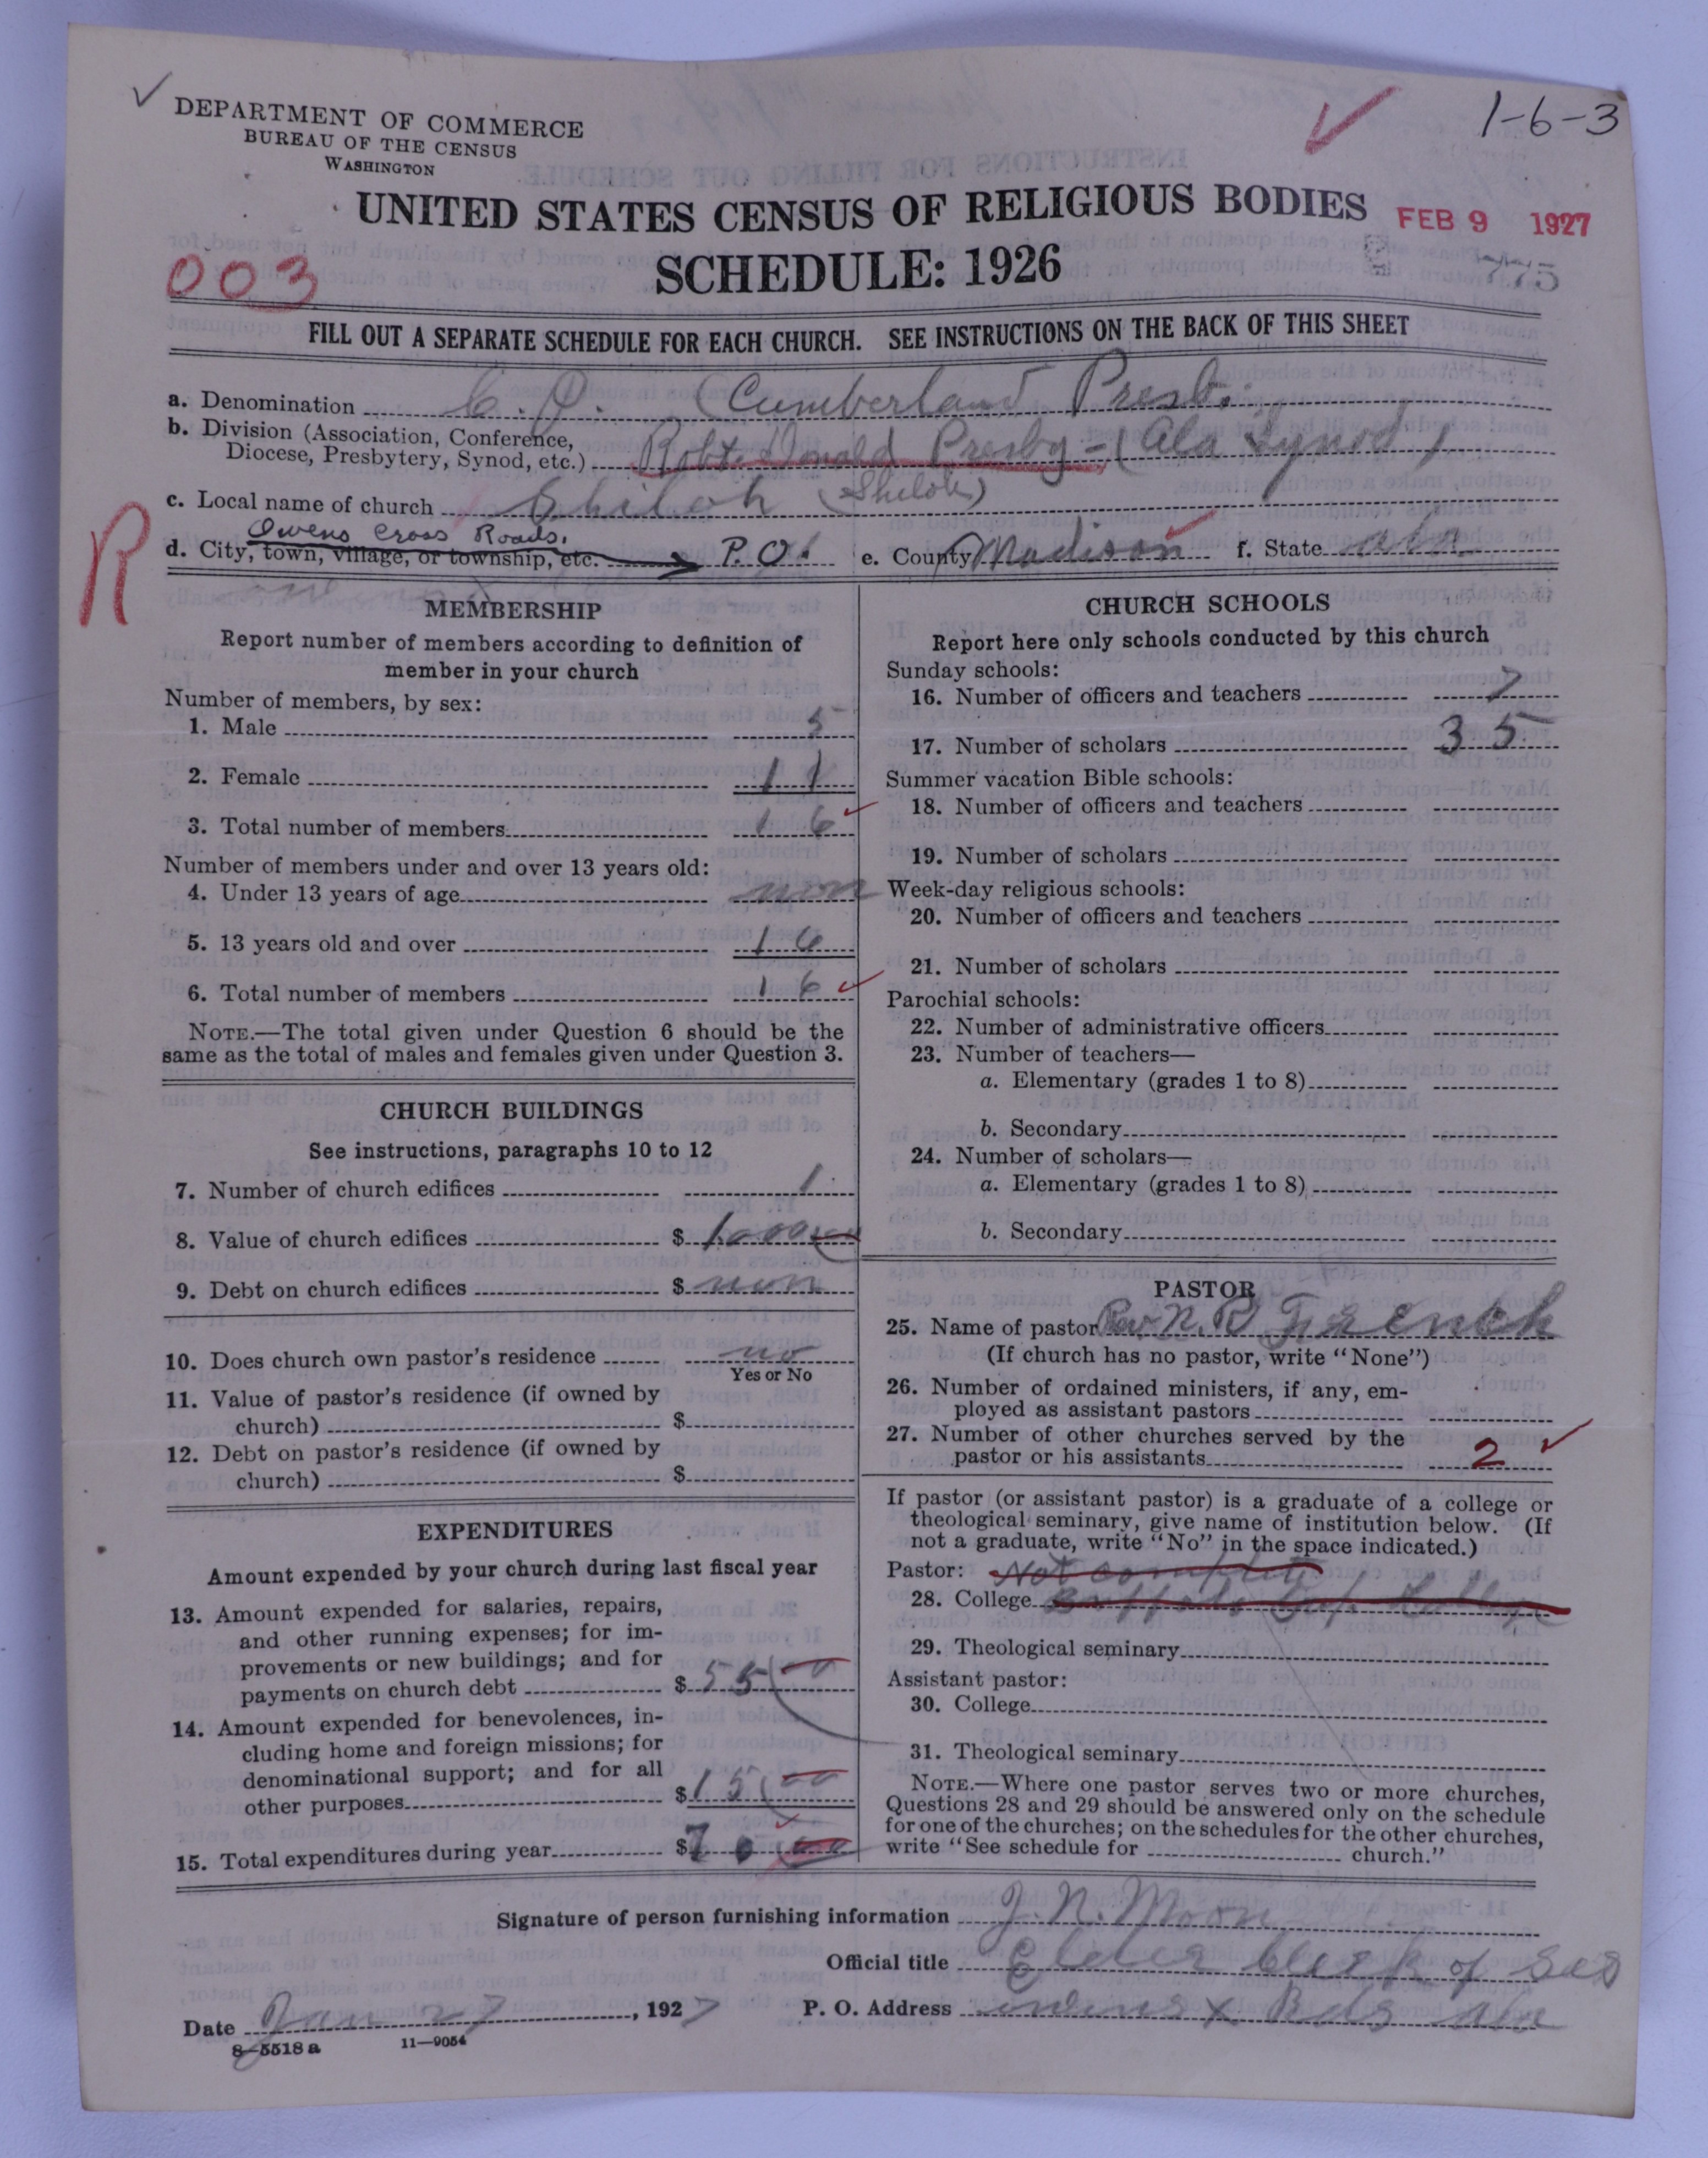 ✓
DEPARTMENT OF COMMERCE
BUREAU OF THE CENSUS
WASHINGTON
✓ 1-6-3
UNITED STATES CENSUS OF RELIGIOUS BODIES
FEB 9 1927
SCHEDULE: 1926
003
775
FILL OUT A SEPARATE SCHEDULE FOR EACH CHURCH. SEE INSTRUCTIONS ON THE BACK OF THIS SHEET
a. Denomination C. P. (Cumberland Presb.
b. Division (Association, Conference,
Diocese, Presbytery, Synod, etc.) Robt. Donald Presby - (Ala Synod)
c. Local name of church Shiloh (Shiloh)
R
Owens Cross Roads.
d. City, town, village, or township, etc. P.O. e. County Madison f. State ala
MEMBERSHIP
Report number of members according to definition of
member in your church
Number of members, by sex:
1. Male 5
2. Female 11
3. Total number of members 16 ✓
Number of members under and over 13 years old:
4. Under 13 years of age non
5. 13 years old and over 16
6. Total number of members 16 ✓
NOTE.—The total given under Question 6 should be the
same as the total of males and females given under Question 3.
CHURCH BUILDINGS
See instructions, paragraphs 10 to 12
7. Number of church edifices 1
8. Value of church edifices $ 1000
9. Debt on church edifices $ non
10. Does church own pastor's residence no
Yes or No
11. Value of pastor's residence (if owned by
church) $
12. Debt on pastor's residence (if owned by
church) $
EXPENDITURES
Amount expended by your church during last fiscal year
13. Amount expended for salaries, repairs,
and other running expenses; for im-
provements or new buildings; and for
payments on church debt $ 55 00
14. Amount expended for benevolences, in-
cluding home and foreign missions; for
denominational support; and for all
other purposes $ 15 00
15. Total expenditures during year $ 70 00
CHURCH SCHOOLS
Report here only schools conducted by this church
Sunday schools:
16. Number of officers and teachers 7
17. Number of scholars 35
Summer vacation Bible schools:
18. Number of officers and teachers
19. Number of scholars
Week-day religious schools:
20. Number of officers and teachers
21. Number of scholars
Parochial schools:
22. Number of administrative officers
23. Number of teachers—
a. Elementary (grades 1 to 8)
b. Secondary
24. Number of scholars—
a. Elementary (grades 1 to 8)
b. Secondary
PASTOR
25. Name of pastor Rev. N. R French
(If church has no pastor, write "None")
26. Number of ordained ministers, if any, em-
ployed as assistant pastors
27. Number of other churches served by the
pastor or his assistants 2 ✓
If pastor (or assistant pastor) is a graduate of a college or
theological seminary, give name of institution below. (If
not a graduate, write "No" in the space indicated.)
Pastor: Not complete
28. College
29. Theological seminary
Assistant pastor:
30. College
31. Theological seminary
NOTE.—Where one pastor serves two or more churches,
Questions 28 and 29 should be answered only on the schedule
for one of the churches; on the schedules for the other churches,
write "See schedule for church."
Signature of person furnishing information J. N. Moon
Official title Elder Clerk of Ses
Date Jan 27, 1927 P. O. Address owens X Rds ala
8-5518 a 11—9054